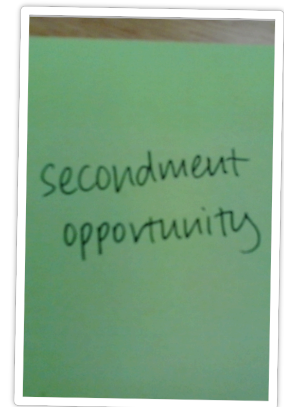 secondment
opportunity